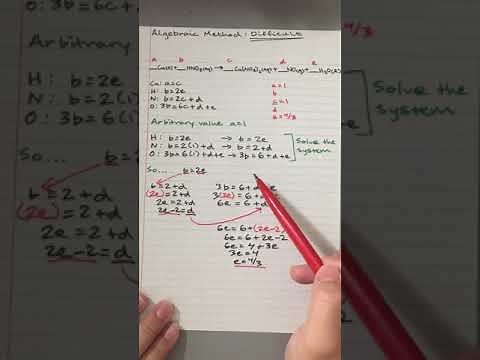 O: 3b=6c
Arbitrary
H: b=2e
N: b=2(1
O: 3b=6(
So...
b=2+
(2e)=2
2e=2+d
2e-2=d
Algebraic Method: Difficult
a b c d e
__Cu(s)+__HNO₃(aq) → __Cu(NO₃)₂(aq)+__NO(g)+__H₂O(l)
Cu: a=c
H: b=2e
N: b=2c+d
O: 3b=6c+d+e
a=1
b
c=1
d
e=4/3
Arbitrary value a=1
H: b=2e → b=2e
N: b=2(1)+d → b=2+d
O: 3b=6(1)+d+e → 3b=6+d+e
Solve the
system
So... b=2e
b=2+d
(2e)=2+d
2e=2+d
2e-2=d
3b=6+d e
3(2e)=6+
6e=6+d
6e=6+(2e-2)
6e=6+2e-2
6e=4+3e
3e=4
e=4/3
=4/3
Solve the
system